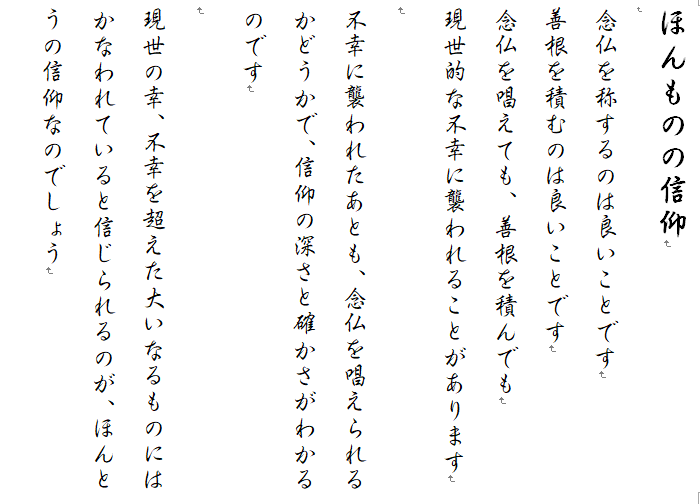 ほんものの信仰
念仏を称するのは良いことです
善根を積むのは良いことです
念仏を唱えても、善根を積んでも
現世的な不幸に襲われることがあります
不幸に襲われたあとも、念仏を唱えられる
かどうかで、信仰の深さと確かさがわかる
のです
現世の幸、不幸を超えた大いなるものには
かなわれていると信じられるのが、ほんと
うの信仰なのでしょう